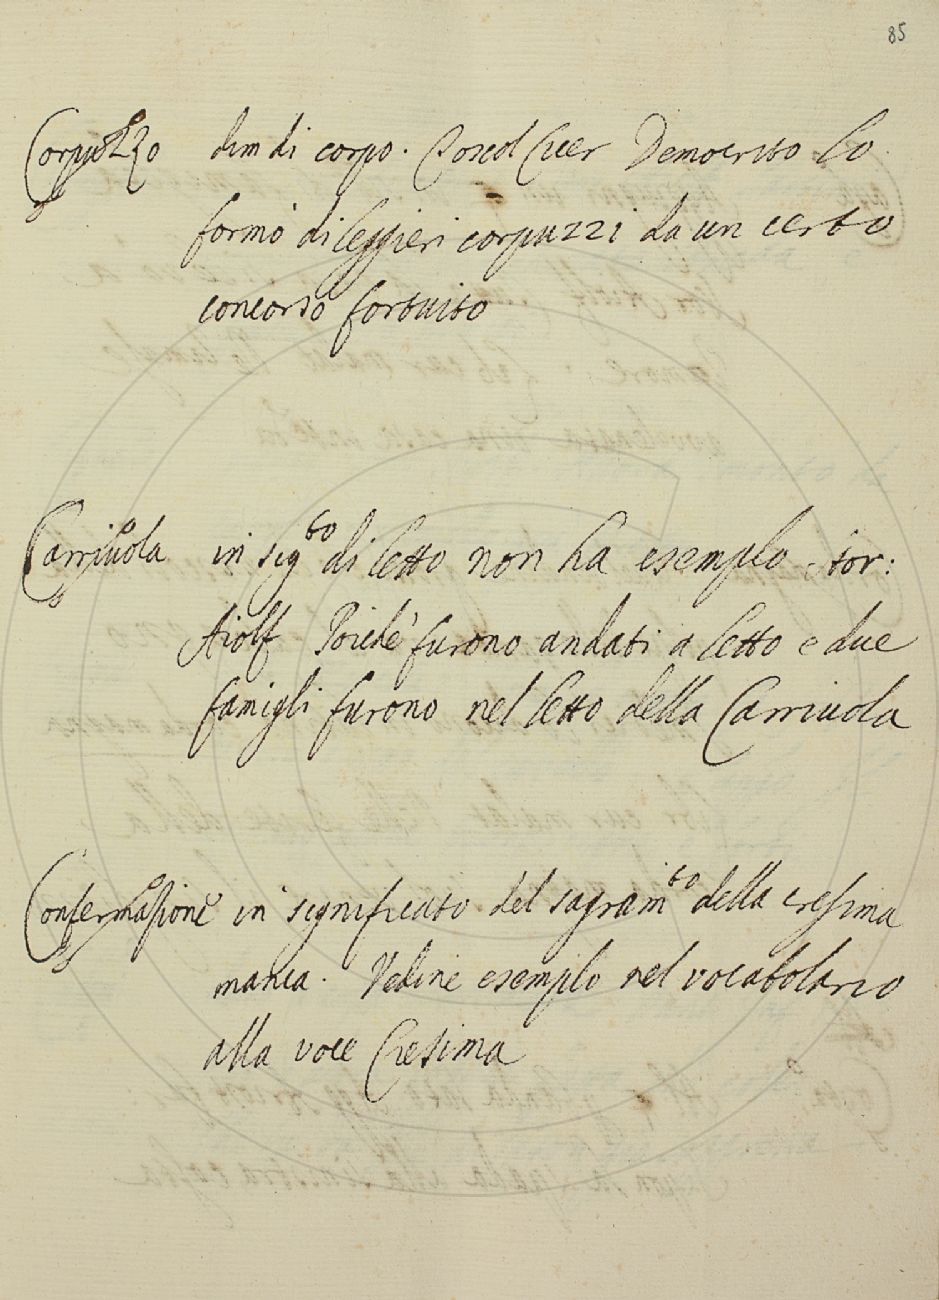 85
Corpuzzo dim di corpo. Boscol Cicer Democrito lo
formò di leggieri corpuzzi da un certo
concorso fortuito
Carriuola in sig^to di letto non ha esempio. stor:
Aiolf Poiché furono andati a letto e due
famigli furono nel letto della Carriuola
Confermazione in significato del sagram^to della cresima
manca. Vedine esempio nel vocabolario
alla voce Cresima